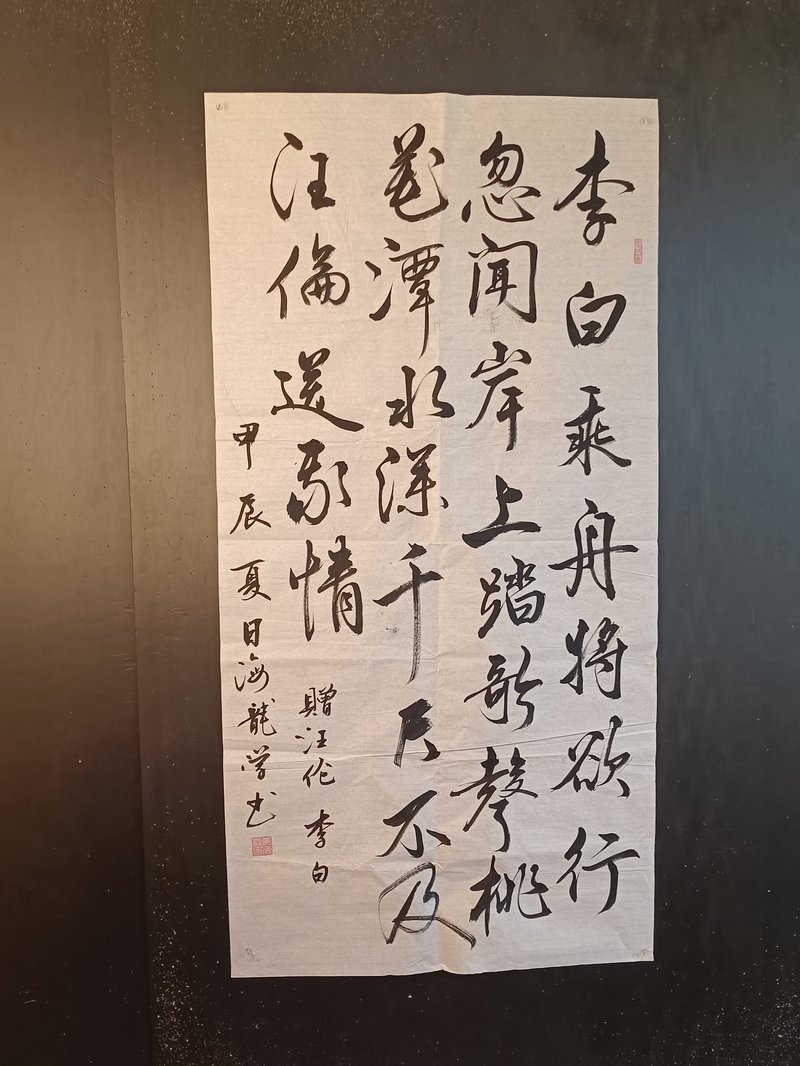 李白乘舟将欲行
忽闻岸上踏歌聲桃
花潭水深千尺不及
汪倫送我情
贈汪伦 李白
甲辰夏日海龍学书